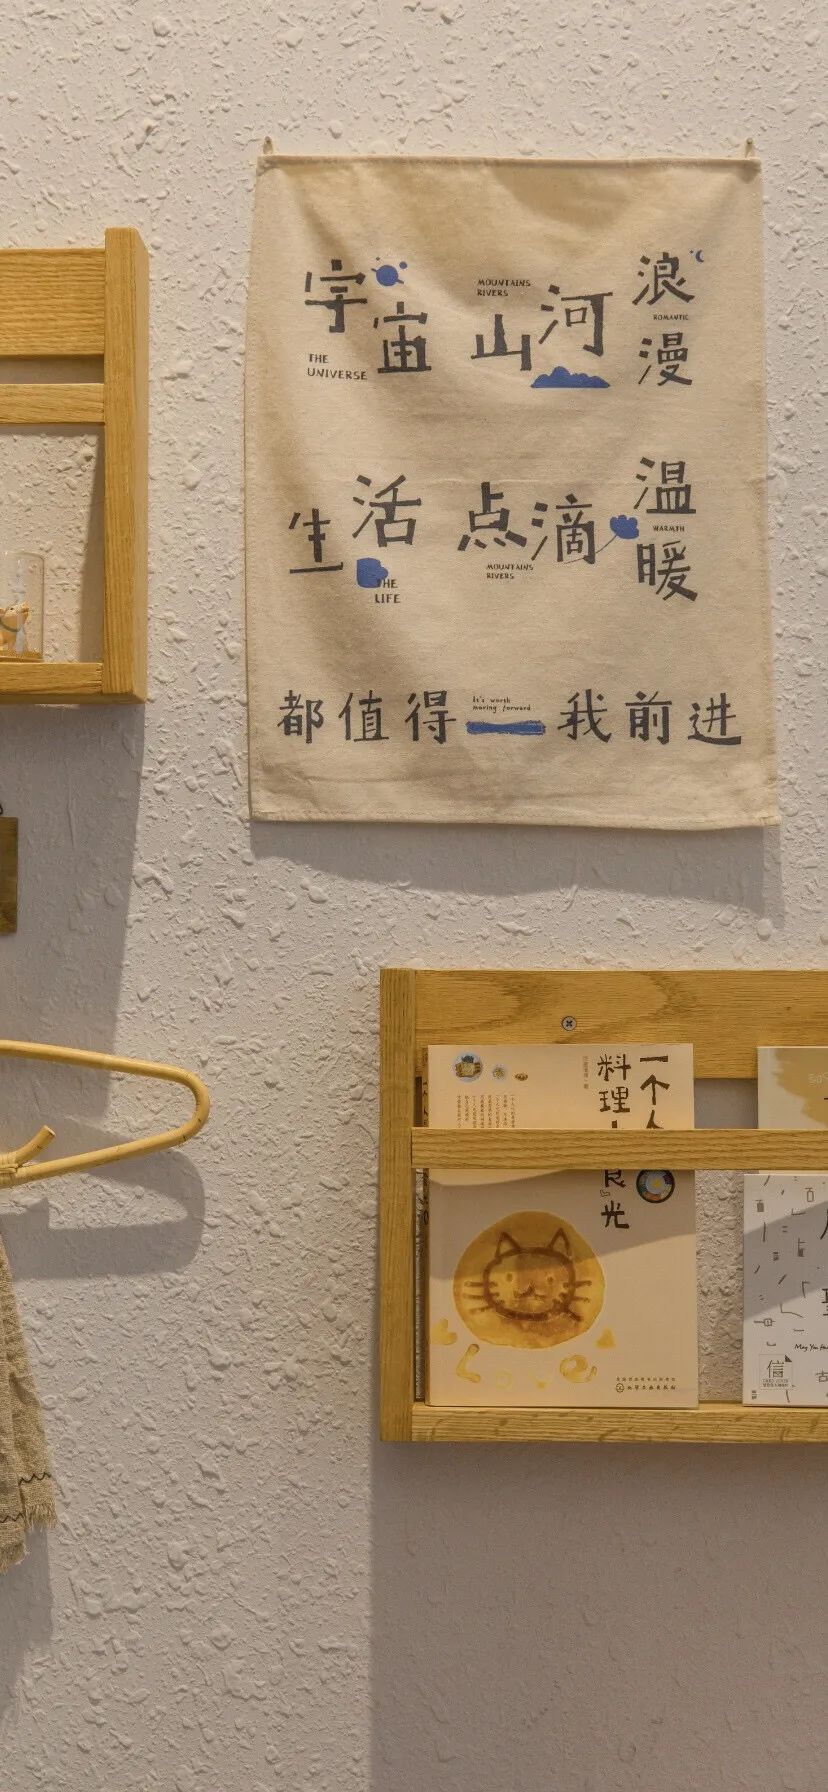 宇宙
THE
UNIVERSE
MOUNTAINS
RIVERS
山河
浪漫
ROMANTIC
生活
THE
LIFE
点滴
MOUNTAINS
RIVERS
温暖
WARMTH
都值得
It's worth
moving forward
我前进
一个人
料理
食光
信